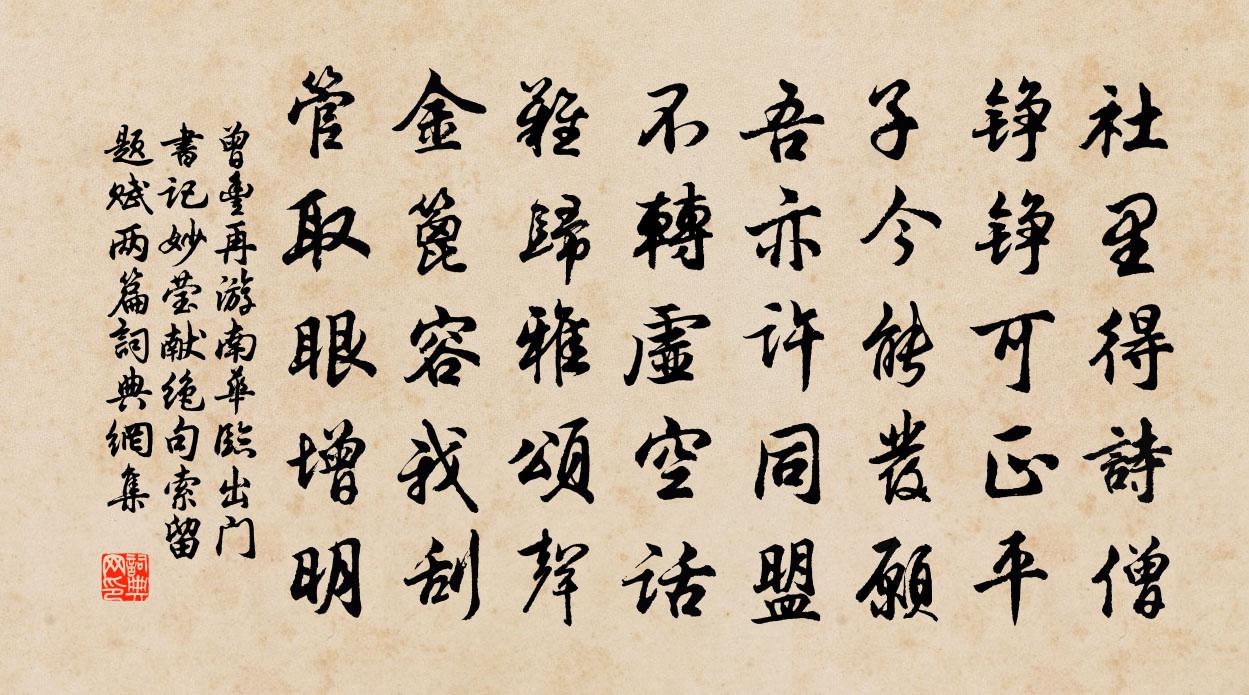 社里得詩僧
錚錚可正平
子今能發願
吾亦许同盟
不轉虛空話
難歸雅頌聲
金篦容我刮
管取眼增明
曾豐再游南華臨出门
書记妙莹献绝句索留
题赋两篇詞典網集
詞典网印